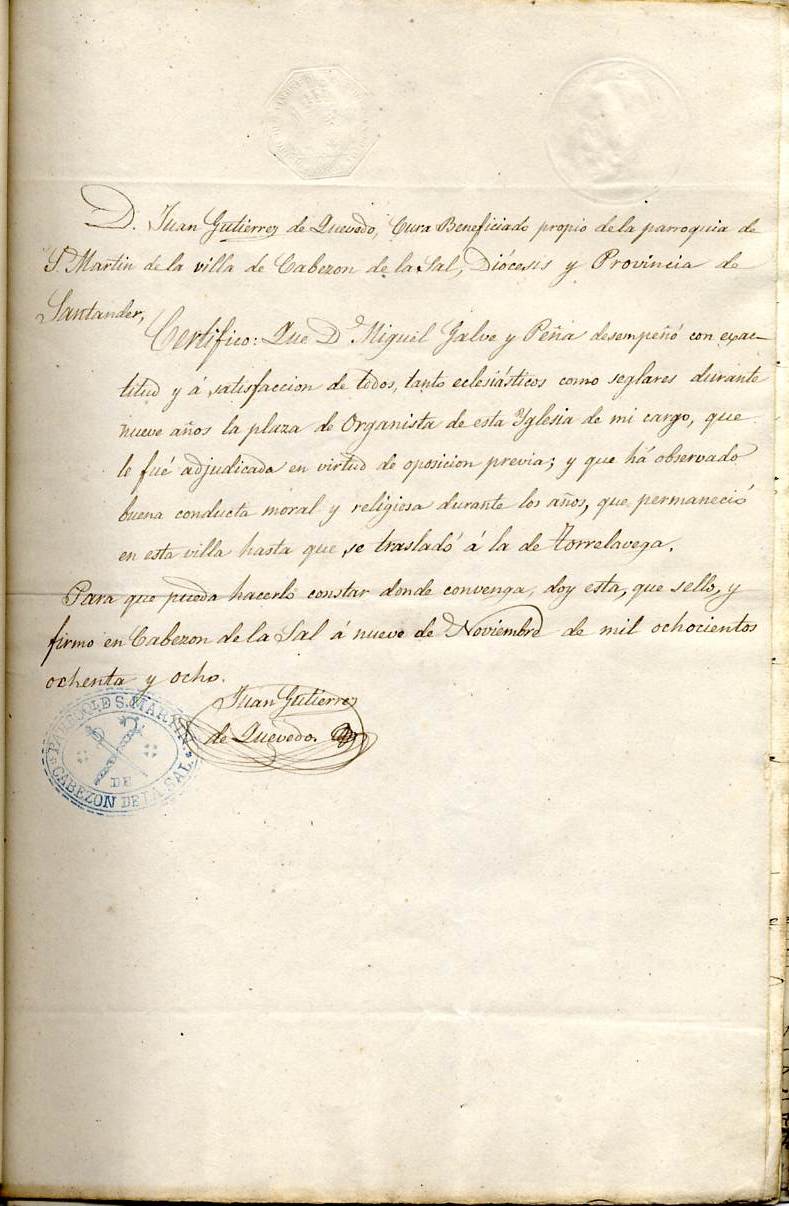 D. Juan Gutiérrez de Quevedo, Cura Beneficiado propio de la parroquia de
S. Martin de la villa de Cabezon de la Sal, Diócesis y Provincia de
Santander,
Certifico: Que D. Miguel Galve y Peña desempeñó con exac-
titud y á satisfaccion de todos, tanto eclesiásticos como seglares durante
nueve años la plaza de Organista de esta Yglesia de mi cargo, que
le fué adjudicada en virtud de oposicion previa; y que há observado
buena conducta moral y religiosa durante los años, que permaneció
en esta villa hasta que se trasladó á la de Torrelavega.
Para que pueda hacerlo constar donde convenga, doy esta, que sello, y
firmo en Cabezon de la Sal á nueve de Noviembre de mil ochocientos
ochenta y ocho.
Juan Gutiérrez
de Quevedo.
S. MARTIN
DE
CABEZON DE LA SAL